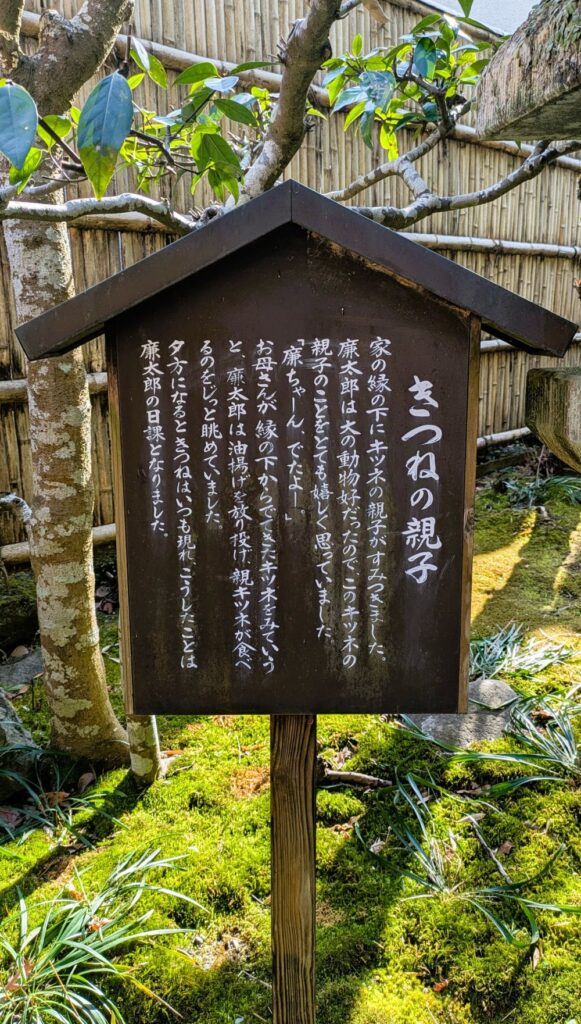 きつねの親子
家の縁の下にキツネの親子がすみつきました。
廉太郎は大の動物好だったので、このキツネの
親子のことをとても嬉しく思っていました。
「廉ちゃーん、でたよー」
お母さんが縁の下からでてきたキツネをみていう
と、廉太郎は油揚げを放り投げ、親キツネが食べ
るのをじっと眺めていました。
夕方になるときつねは、いつも現れ、こうしたことは
廉太郎の日課となりました。